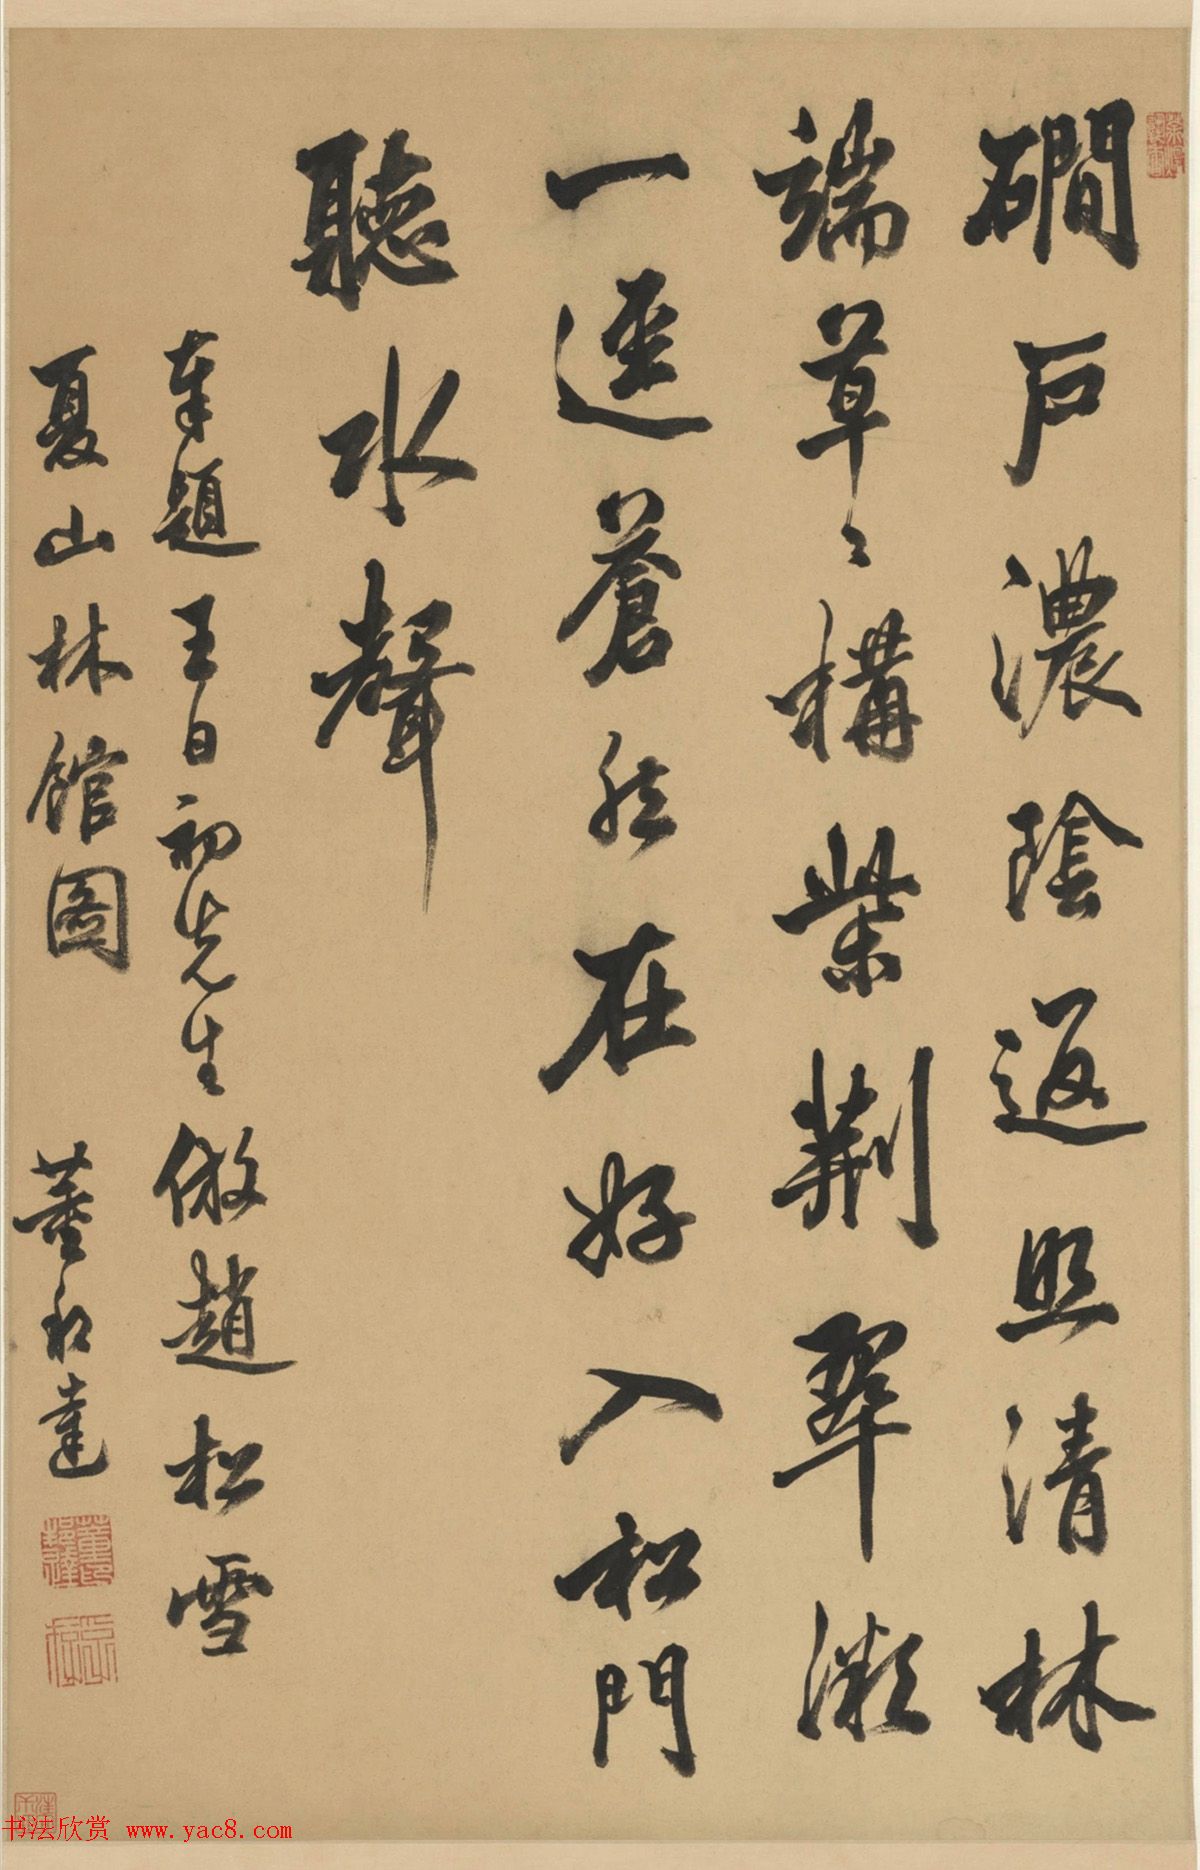 磵戶濃陰返照清林
端草〻構柴荆翠澂
一逕蒼然在好入松門
聽水聲
奉題王日初先生倣趙松雪
夏山林館圖 董邦達
书法欣赏 www.yac8.com